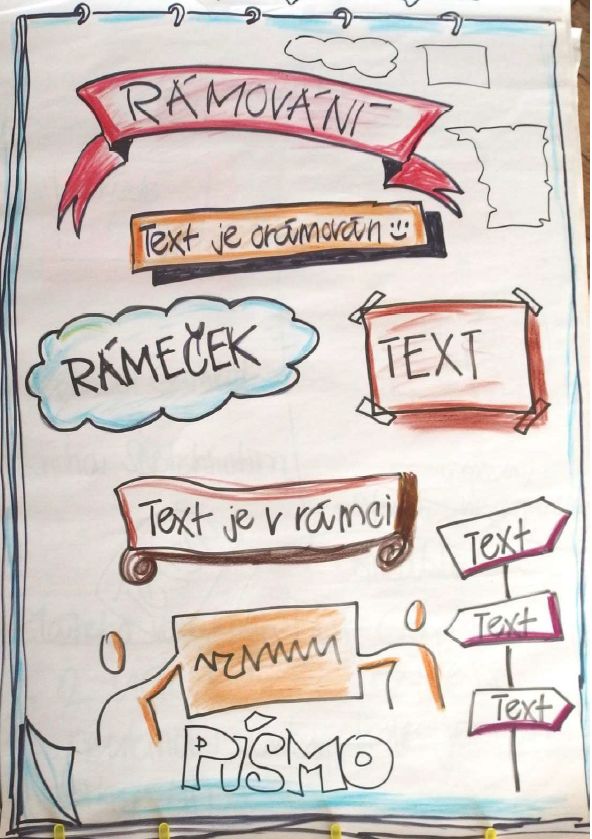 RÁMOVÁNÍ
Text je orámován
RÁMEČEK
TEXT
Text je v rámci
Text
Text
Text
PÍSMO